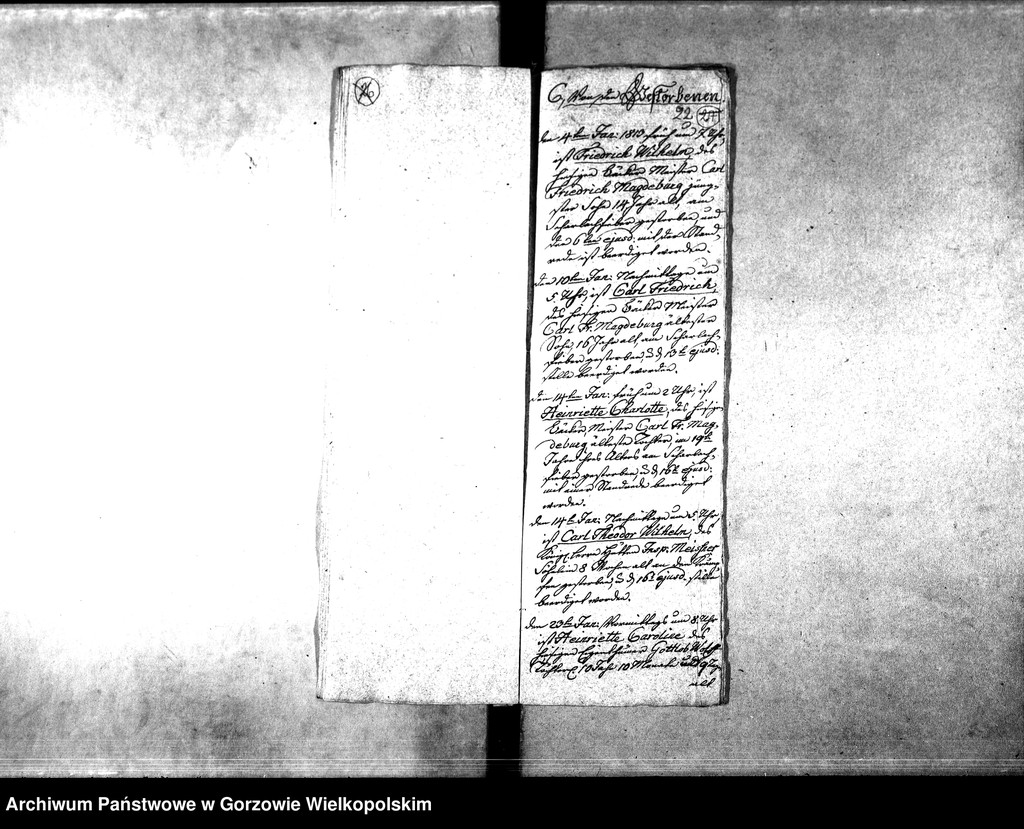 26
C, Von den Gestorbenen.
22 27
den 4ten Jan: 1810 früh um 7 Uhr,
ist Friedrich Wilhelm, des
hiesigen Bäcker Meister Carl
Friedrich Magdeburg jüng-
ster Sohn 14 Jahr alt, am
Scharlachfieber gestorben, und
den 6ten ejusd: mit der Stand-
rede ist beerdiget worden.
den 10ten Jan: Nachmittags um
5. Uhr, ist Carl Friedrich,
des hiesigen Bäcker Meister
Carl Fr. Magdeburg ältester
Sohn, 16 Jahr alt, am Scharlach-
fieber gestorben, d. 13ten ejusd:
stille beerdiget worden.
den 14ten Jan: früh um 2 Uhr, ist
Heinriette Charlotte, des hiesigen
Bäcker, Meister Carl Fr. Mag-
deburg älteste Tochter, im 19ten
Jahre ihres Alters am Scharlach-
fieber gestorben, d. 16ten ejusd:
mit einer Standrede beerdiget
worden.
den 14ten Jan: Nachmittags um 5. Uhr,
ist Carl Theodor Wilhelm, des
Königl. Herrn Hütten Insp. Meisner
Söhnlein 8 Wochen alt an den
gestorben, d. 16ten ejusd. stille
beerdiget worden.
den 23ten Jan: Vormittags um 8. Uhr
ist Heinriette Caroline des
hiesigen Eigenthümer Gottlob Wolff
Töchterl. 10 Jahr 10 Monath und 9 Tage
alt
Archiwum Państwowe w Gorzowie Wielkopolskim